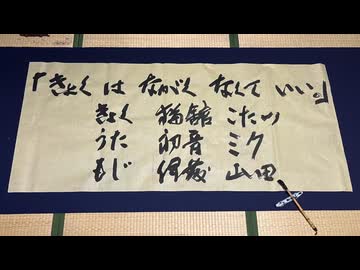 「きょくは ながく なくて いい。」
きょく 猫舘 こたつ
うた 初音 ミク
もじ 山田